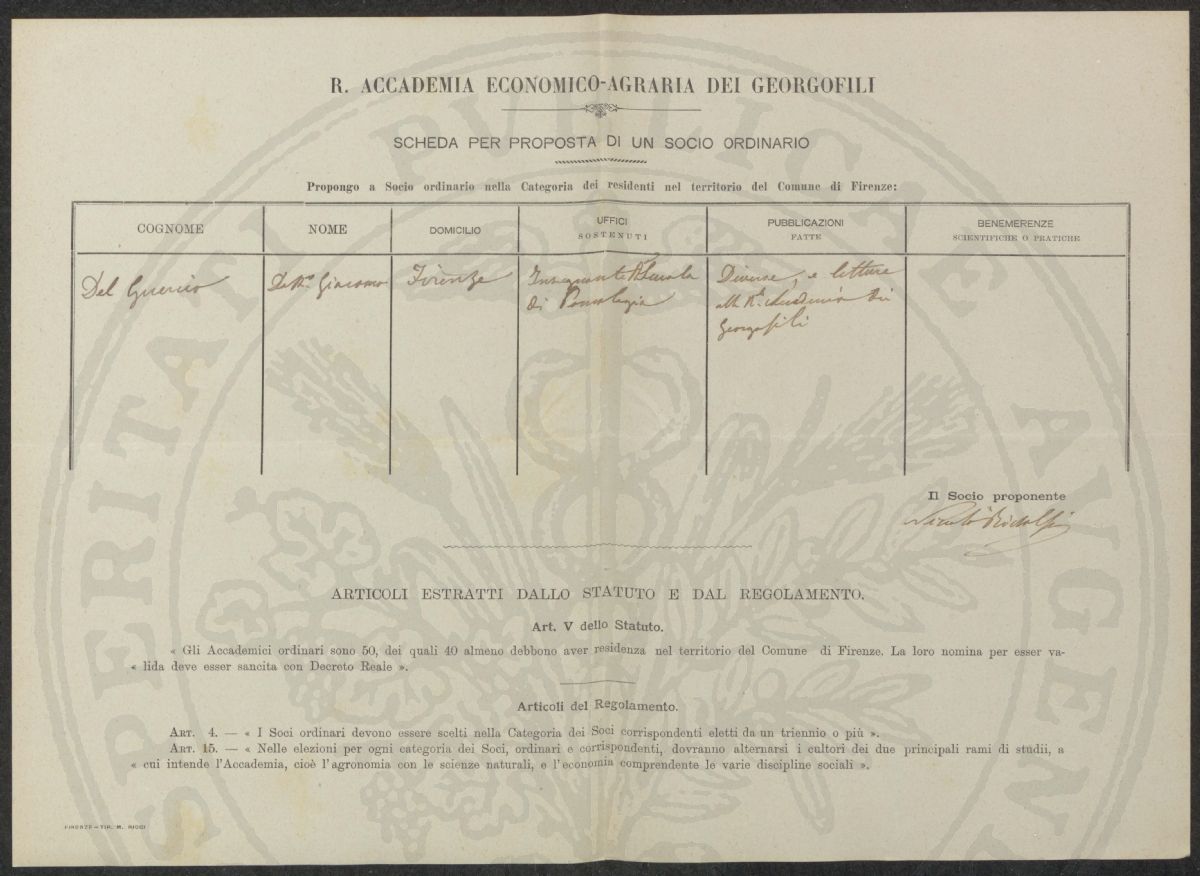 R. ACCADEMIA ECONOMICO-AGRARIA DEI GEORGOFILI
SCHEDA PER PROPOSTA DI UN SOCIO ORDINARIO
Propongo a Socio ordinario nella Categoria dei residenti nel territorio del Comune di Firenze:
COGNOME
NOME
DOMICILIO
UFFICI
SOSTENUTI
PUBBLICAZIONI
FATTE
BENEMERENZE
SCIENTIFICHE O PRATICHE
Del Guercio
Dott. Giacomo
Firenze
Insegnante R. Scuola
di Pomologia
Diverse, e letture
alla R. Accademia dei
Georgofili
Il Socio proponente
Niccolò Ridolfi
ARTICOLI ESTRATTI DALLO STATUTO E DAL REGOLAMENTO.
Art. V dello Statuto.
« Gli Accademici ordinari sono 50, dei quali 40 almeno debbono aver residenza nel territorio del Comune di Firenze. La loro nomina per esser va-
« lida deve esser sancita con Decreto Reale ».
Articoli del Regolamento.
ART. 4. — « I Soci ordinari devono essere scelti nella Categoria dei Soci corrispondenti eletti da un triennio o più ».
ART. 15. — « Nelle elezioni per ogni categoria dei Soci, ordinari e corrispondenti, dovranno alternarsi i cultori dei due principali rami di studii, a
« cui intende l'Accademia, cioè l'agronomia con le scienze naturali, e l'economia comprendente le varie discipline sociali ».
FIRENZE—TIP. M. RICCI
PROSPERITATI PUBLICAE AUGENDAE